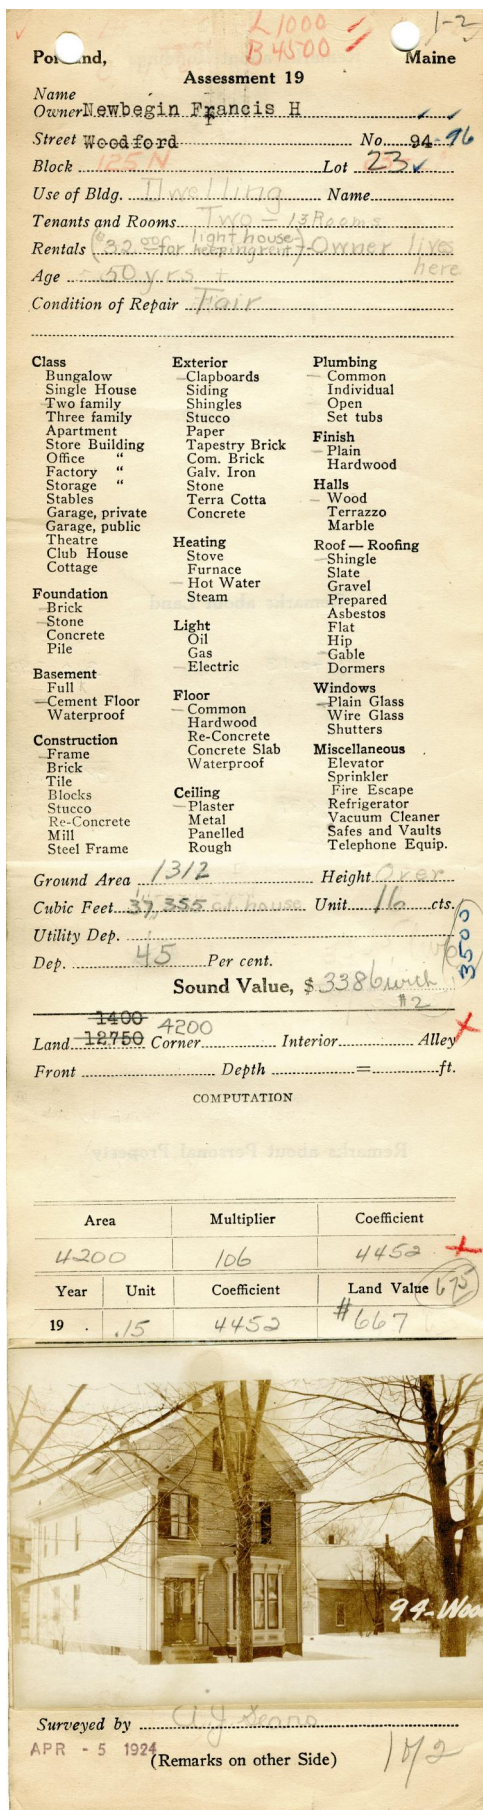 L 1000
B 4500
1-2
Portland, Maine
Assessment 19
Name
Owner Newbegin Francis H
Street Woodford No. 94-96
Block 125 N Lot 23
Use of Bldg. Dwelling Name
Tenants and Rooms Two - 13 Rooms
Rentals ($32.00 for light house-keeping rent) - Owner lives here
Age 50 yrs +
Condition of Repair Fair
Class
Bungalow
Single House
Two family
Three family
Apartment
Store Building
Office "
Factory "
Storage "
Stables
Garage, private
Garage, public
Theatre
Club House
Cottage
Foundation
Brick
Stone
Concrete
Pile
Basement
Full
Cement Floor
Waterproof
Construction
Frame
Brick
Tile
Blocks
Stucco
Re-Concrete
Mill
Steel Frame
Exterior
Clapboards
Siding
Shingles
Stucco
Paper
Tapestry Brick
Com. Brick
Galv. Iron
Stone
Terra Cotta
Concrete
Heating
Stove
Furnace
Hot Water
Steam
Light
Oil
Gas
Electric
Floor
Common
Hardwood
Re-Concrete
Concrete Slab
Waterproof
Ceiling
Plaster
Metal
Panelled
Rough
Plumbing
Common
Individual
Open
Set tubs
Finish
Plain
Hardwood
Halls
Wood
Terrazzo
Marble
Roof — Roofing
Shingle
Slate
Gravel
Prepared
Asbestos
Flat
Hip
Gable
Dormers
Windows
Plain Glass
Wire Glass
Shutters
Miscellaneous
Elevator
Sprinkler
Fire Escape
Refrigerator
Vacuum Cleaner
Safes and Vaults
Telephone Equip.
Ground Area 1312 Height Over
Cubic Feet 37,355 of house Unit 16 cts.
Utility Dep.
Dep. 45 Per cent.
3500
Sound Value, $ 3386 with #2
1400
Land 12750 4200 Corner Interior Alley
Front Depth = ft.
COMPUTATION
Area Multiplier Coefficient
4200 106 4452
Year Unit Coefficient Land Value 675
19 . .15 4452 $667
94-Woo
Surveyed by
APR - 5 1924
(Remarks on other Side)
1 of 2